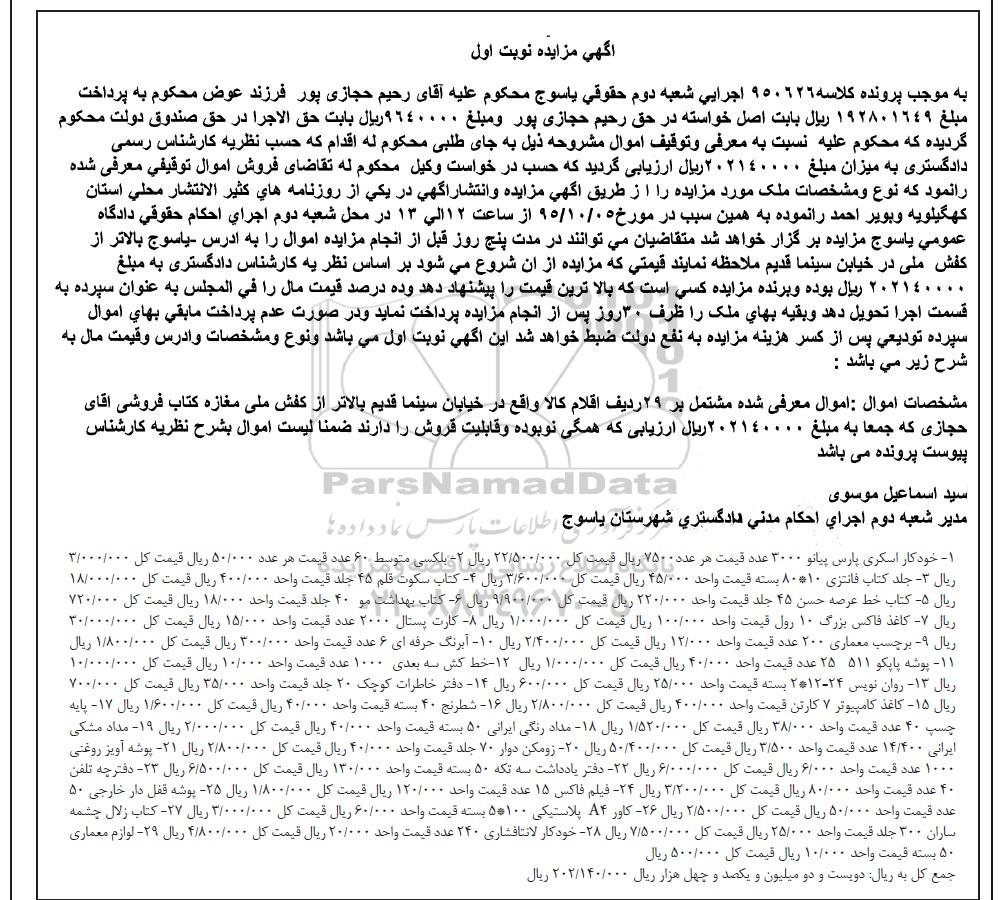 اگهي مزايده نوبت اول
به موجب پرونده کلاسه۹۵۰۶۲۶ اجرايي شعبه دوم حقوقي ياسوج محکوم عليه آقای رحيم حجازی پور فرزند عوض محکوم به پرداخت
مبلغ ۱۹۲۸۰۱۶۴۹ ريال بابت اصل خواسته در حق رحيم حجازی پور ومبلغ ۹۶۴۰۰۰۰ريال بابت حق الاجرا در حق صندوق دولت محکوم
گرديده که محکوم عليه نسبت به معرفی وتوقيف اموال مشروحه ذيل به جای طلبی محکوم له اقدام که حسب نظريه کارشناس رسمی
دادگستری به ميزان مبلغ ۲۰۲۱۴۰۰۰۰ريال ارزيابی گرديد که حسب در خواست وکيل محکوم له تقاضای فروش اموال توقيفي معرفی شده
رانمود که نوع ومشخصات ملک مورد مزايده را ا ز طريق اگهي مزايده وانتشاراگهي در يکي از روزنامه هاي کثير الانتشار محلي استان
کهگيلويه وبوير احمد رانموده به همين سبب در مورخ۹۵/۱۰/۰۵ از ساعت ۱۲الي ۱۳ در محل شعبه دوم اجراي احکام حقوقي دادگاه
عمومي ياسوج مزايده بر گزار خواهد شد متقاضيان مي توانند در مدت پنج روز قبل از انجام مزايده اموال را به ادرس -ياسوج بالاتر از
کفش ملی در خيابن سينما قديم ملاحظه نمايند قيمتي که مزايده از ان شروع مي شود بر اساس نظر يه کارشناس دادگستری به مبلغ
۲۰۲۱۴۰۰۰۰ ريال بوده وبرنده مزايده کسي است که بالا ترين قيمت را پيشنهاد دهد وده درصد قيمت مال را في المجلس به عنوان سپرده به
قسمت اجرا تحويل دهد وبقيه بهاي ملک را ظرف ۳۰روز پس از انجام مزايده پرداخت نمايد ودر صورت عدم پرداخت مابقي بهاي اموال
سپرده توديعي پس از کسر هزينه مزايده به نفع دولت ضبط خواهد شد اين اگهي نوبت اول مي باشد ونوع ومشخصات وادرس وقيمت مال به
شرح زير مي باشد :
مشخصات اموال :اموال معرفی شده مشتمل بر ۲۹رديف اقلام کالا واقع در خيابان سينما قديم بالاتر از کفش ملی مغازه کتاب فروشی اقای
حجازی که جمعا به مبلغ ۲۰۲۱۴۰۰۰۰ريال ارزيابی که همگی نوبوده وقابليت قروش را دارند ضمنا ليست اموال بشرح نظريه کارشناس
پيوست پرونده می باشد
سيد اسماعيل موسوی
مدير شعبه دوم اجراي احکام مدني دادگستري شهرستان ياسوج
۱- خودکار اسکری پارس پیانو ۳۰۰۰ عدد قیمت هر عدد ۷۵۰۰ ریال قیمت کل ۲۲/۵۰۰/۰۰۰ ریال ۲- بلکسی متوسط ۶۰ عدد قیمت هر عدد ۵۰/۰۰۰ ریال قیمت کل ۳/۰۰۰/۰۰۰
ریال ۳- جلد کتاب فانتزی ۱۰*۸۰ بسته قیمت واحد ۴۵/۰۰۰ ریال قیمت کل ۳/۶۰۰/۰۰۰ ریال ۴- کتاب سکوت قلم ۴۵ جلد قیمت واحد ۴۰۰/۰۰۰ ریال قیمت کل ۱۸/۰۰۰/۰۰۰
ریال ۵- کتاب خط عرصه حسن ۴۵ جلد قیمت واحد ۲۲۰/۰۰۰ ریال قیمت کل ۹/۹۰۰/۰۰۰ ریال ۶- کتاب بهداشت مو ۴۰ جلد قیمت واحد ۱۸/۰۰۰ ریال قیمت کل ۷۲۰/۰۰۰
ریال ۷- کاغذ فاکس بزرگ ۱۰ رول قیمت واحد ۱۰۰/۰۰۰ ریال قیمت کل ۱/۰۰۰/۰۰۰ ریال ۸- کارت پستال ۲۰۰۰ عدد قیمت واحد ۱۵/۰۰۰ ریال قیمت کل ۳۰/۰۰۰/۰۰۰
ریال ۹- برچسب معماری ۲۰۰ عدد قیمت واحد ۱۲/۰۰۰ ریال قیمت کل ۲/۴۰۰/۰۰۰ ریال ۱۰- آبرنگ حرفه ای ۶ عدد قیمت واحد ۳۰۰/۰۰۰ ریال قیمت کل ۱/۸۰۰/۰۰۰ ریال
۱۱- پوشه پاپکو ۵۱۱ ۲۵ عدد قیمت واحد ۴۰/۰۰۰ ریال قیمت کل ۱/۰۰۰/۰۰۰ ریال ۱۲-خط کش سه بعدی ۱۰۰۰ عدد قیمت واحد ۱۰/۰۰۰ ریال قیمت کل ۱۰/۰۰۰/۰۰۰
ریال ۱۳- روان نویس ۲۴-۱۲*۲ بسته قیمت واحد ۲۵/۰۰۰ ریال قیمت کل ۶۰۰/۰۰۰ ریال ۱۴- دفتر خاطرات کوچک ۲۰ جلد قیمت واحد ۳۵/۰۰۰ ریال قیمت کل ۷۰۰/۰۰۰
ریال ۱۵- کاغذ کامپیوتر ۷ کارتن قیمت واحد ۴۰۰/۰۰۰ ریال قیمت کل ۲/۸۰۰/۰۰۰ ریال ۱۶- شطرنج ۴۰ بسته قیمت واحد ۴۰/۰۰۰ ریال قیمت کل ۱/۶۰۰/۰۰۰ ریال ۱۷- پایه
چسپ ۴۰ عدد قیمت واحد ۳۸/۰۰۰ ریال قیمت کل ۱/۵۲۰/۰۰۰ ریال ۱۸- مداد رنگی ایرانی ۵۰ بسته قیمت واحد ۴۰/۰۰۰ ریال قیمت کل ۲/۰۰۰/۰۰۰ ریال ۱۹- مداد مشکی
ایرانی ۱۴/۴۰۰ عدد قیمت واحد ۳/۵۰۰ ریال قیمت کل ۵۰/۴۰۰/۰۰۰ ریال ۲۰- زومکن دوار ۷۰ جلد قیمت واحد ۴۰/۰۰۰ ریال قیمت کل ۲/۸۰۰/۰۰۰ ریال ۲۱- پوشه آویز روغنی
۱۰۰۰ عدد قیمت واحد ۶/۰۰۰ ریال قیمت کل ۶/۰۰۰/۰۰۰ ریال ۲۲- دفتر یادداشت سه تکه ۵۰ بسته قیمت واحد ۱۳۰/۰۰۰ ریال قیمت کل ۶/۵۰۰/۰۰۰ ریال ۲۳- دفترچه تلفن
۴۰ عدد قیمت واحد ۸۰/۰۰۰ ریال قیمت کل ۳/۲۰۰/۰۰۰ ریال ۲۴- فیلم فاکس ۱۵ عدد قیمت واحد ۱۲۰/۰۰۰ ریال قیمت کل ۱/۸۰۰/۰۰۰ ریال ۲۵- پوشه قفل دار خارجی ۵۰
عدد قیمت واحد ۵۰/۰۰۰ ریال قیمت کل ۲/۵۰۰/۰۰۰ ریال ۲۶- کاور A۴ پلاستیکی ۱۰۰*۵ بسته قیمت واحد ۶۰/۰۰۰ ریال قیمت کل ۳/۰۰۰/۰۰۰ ریال ۲۷- کتاب زلال چشمه
ساران ۳۰۰ جلد قیمت واحد ۲۵/۰۰۰ ریال قیمت کل ۷/۵۰۰/۰۰۰ ریال ۲۸- خودکار لانتافشاری ۲۴۰ عدد قیمت واحد ۲۰/۰۰۰ ریال قیمت کل ۴/۸۰۰/۰۰۰ ریال ۲۹- لوازم معماری
۵۰ بسته قیمت واحد ۱۰/۰۰۰ ریال قیمت کل ۵۰۰/۰۰۰ ریال
جمع کل به ریال: دویست و دو میلیون و یکصد و چهل هزار ریال ۲۰۲/۱۴۰/۰۰۰ ریال
ParsNamadData
مرکز فرآوری اطلاعات پارس نماد داده ها
پایگاه اطلاع رسانی مناقصه و مزایده